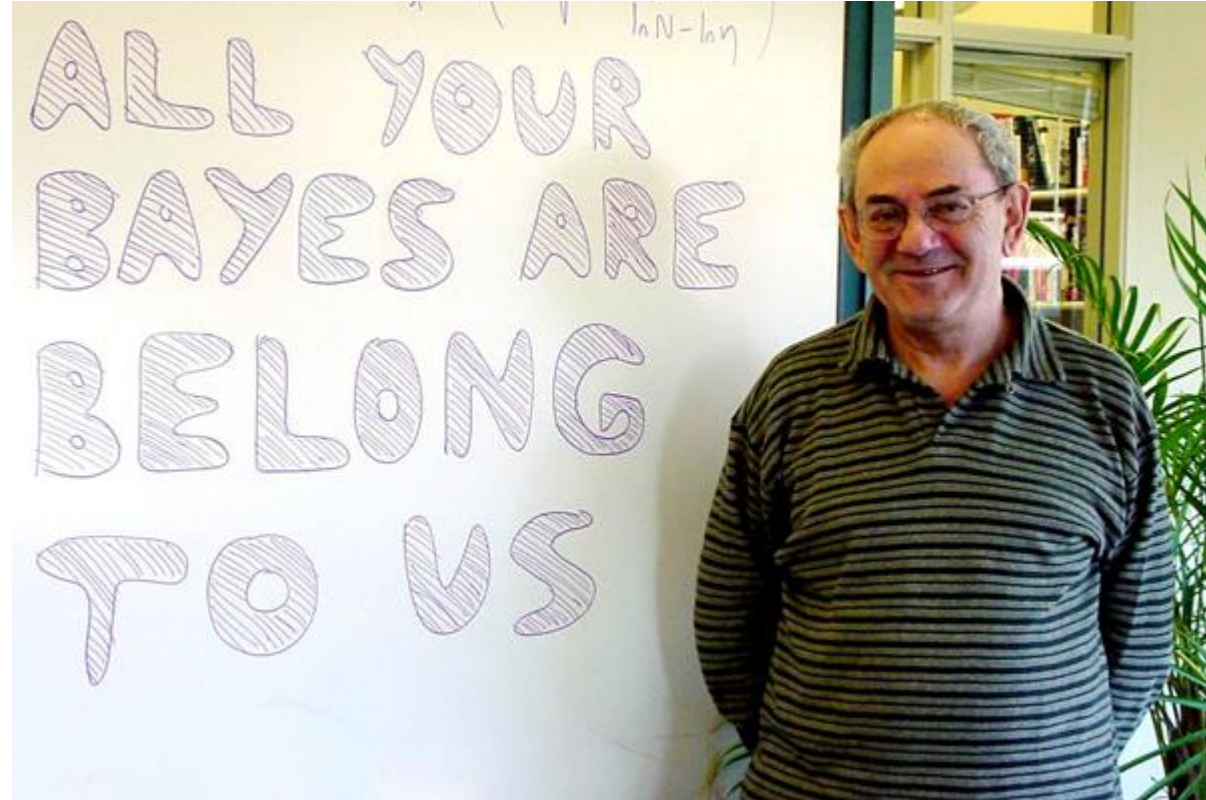 ln N - ln η )
ALL YOUR
BAYES ARE
BELONG
TO US